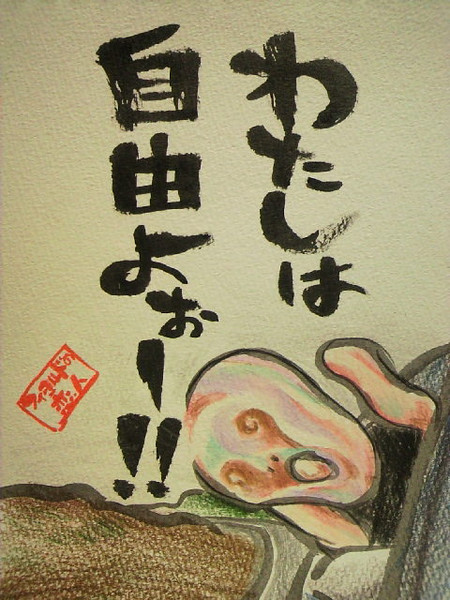 わたしは
自由よぉー!!